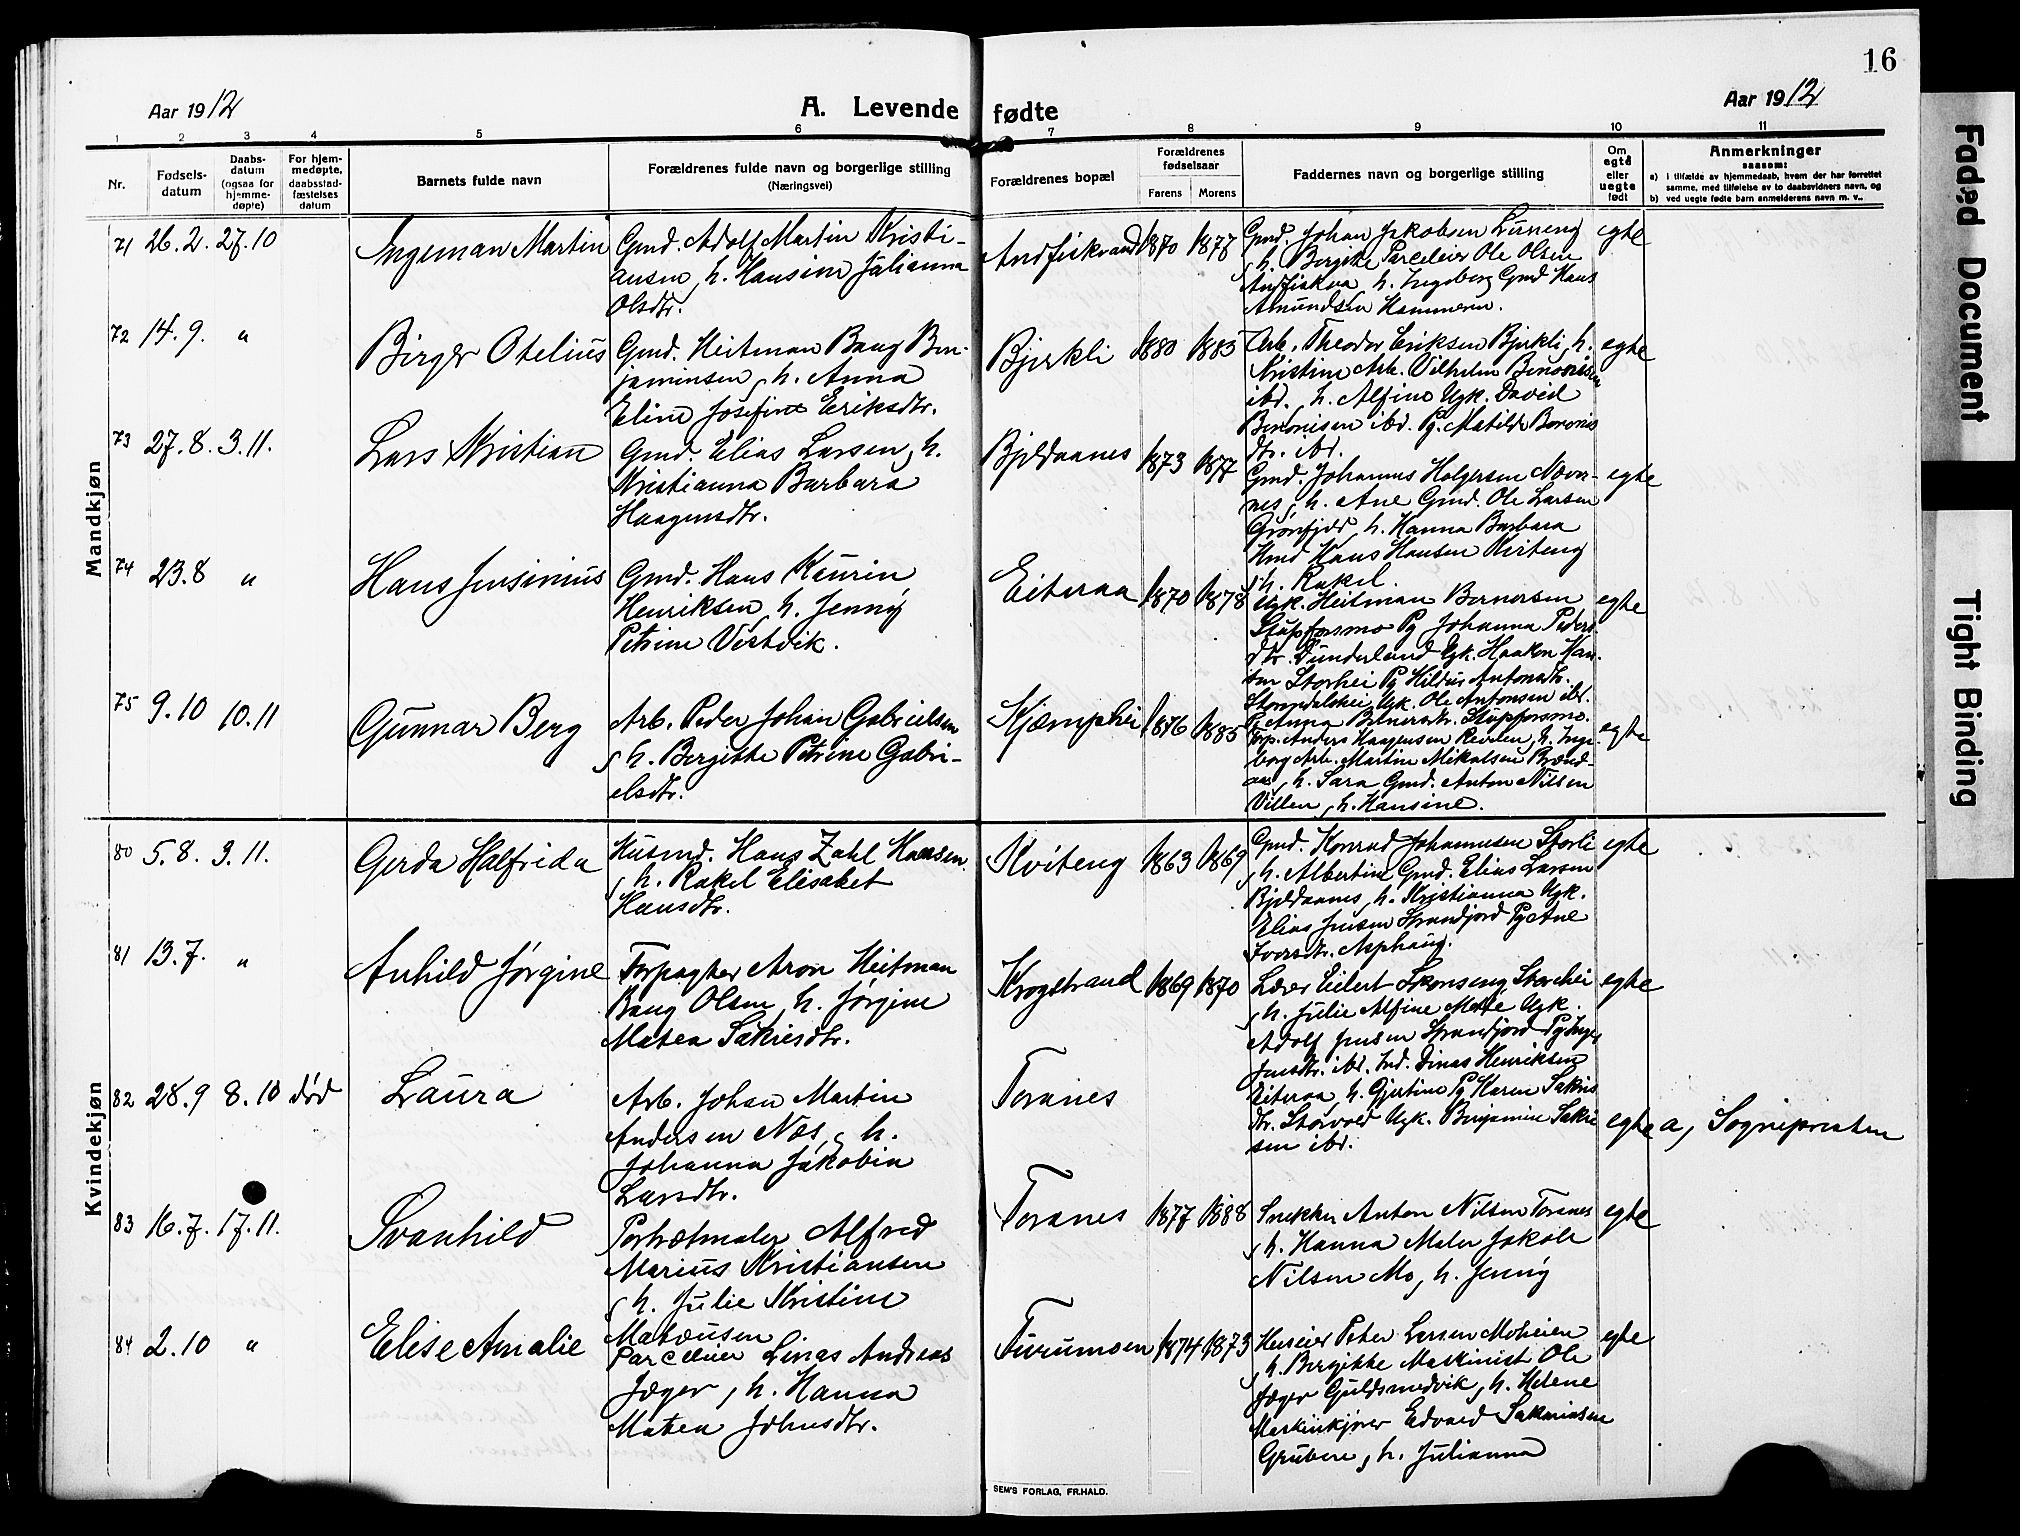 16
Aar 1912
A. Levende fødte
Aar 1912
1 2 3 4 5 6 7 8 9 10 11
Nr.
Fødsels-
datum
Daabs-
datum
(ogsaa for
hjemme-
døpte)
For hjem-
medøpte,
daabsstad-
fæstelses
datum
Barnets fulde navn
Forældrenes fulde navn og borgerlige stilling
(Næringsvei)
Forældrenes bopæl
Forældrenes
fødselsaar
Farens Morens
Faddernes navn og borgerlige stilling
Om
egte
eller
uegte
født
Anmerkninger
saasom:
a) i tilfælde av hjemmedaab, hvem der har forrettet
samme, med tilføielse av to daabsvidners navn, og
b) ved uegte fødte barn anmelderens navn m. v..
Mandkjøn
71 26.2. 27.10 Ingeman Martin
Gmd. Adolf Martin Kristi-
ansen, h. Hansine Julianna
Olsdtr.
Andfiskvand 1870 1877
Gmd. Johan Jakobsen
h. Bergitte Parcelier Ole Olsen
h. Ingeborg Gmd Hans
Amundsen Hammeren.
egte
72 14.9. " Birger Otelius
Gmd. Heitman Baug Ben-
jaminsen, h. Anna
Eline Josefine Eriksdtr.
Bjerkli 1880 1883
Arb. Theodor Eriksen Bjerkli, h.
Kristine Arb. Vilhelm
ibd., h. Alfine Ugk. David
ibd. Pg. Matilde
dtr. ibd.
egte
73 27.8. 3.11. Lars Kristian
Gmd. Elias Larsen, h.
Kristianna Barbara
Haagensdtr.
Bjeldaanes 1873 1877
Gmd. Johannes Holgersen Næver-
nes, h. Ane Gmd. Ole Larsen
Grønfjeld, h. Hanna Barbara
Hmd Hans Hansen Kviteng
h. Rakel.
egte
74 23.8 " Hans Jensinius
Gmd. Hans Kaurin
Henriksen, h. Jenny
Petrine Vestvik.
Eiteraa 1870 1878
Ugk. Heitman Bernersen
Stupforsmo Pg Johanna Peders-
dtr. Dunderland Ugk. Haakon Han-
sen Storhei Pg Hildur Antonsdtr.
Ugk. Ole Antonsen ibd.
Pg Anna Bernersdtr. Stupforsmo.
egte
75 9.10 10.11 Gunnar Berg
Arb. Peder Johan Gabrielsen
, h. Bergitte Petrine Gabri-
elsdtr.
Kjæmphei 1876 1885
Forp. Anders Haagensen Revelen, h. Inge-
borg Arb. Martin Mikalsen Brænd-
aas, h. Sara Gmd. Anton Nilsen
Villen, h. Hansine.
egte
Kvindekjøn
80 5.8. 3.11. Gerda Halfrida
Husmd. Hans Zahl Hansen
, h. Rakel Elisabet
Hansdtr.
Kviteng 1863 1869
Gmd. Konrad Johannesen Storli
, h. Albertine Gmd. Elias Larsen
Bjeldaanes, h. Kristianna Ugk.
Elias Jensen Strandjord Pg Ane
Iversdtr. Asphaug.
egte
81 13.7. " Anhild Jørgine
Forpagter Aron Heitman
Baug Olsen, h. Jørgine
Matea Sakriesdtr.
Krogstrand 1869 1870
Lærer Eilert Skonseng Storhei
, h. Julie Alfine Ugk.
Adolf Jensen Strandjord Pg Inger
Jensdtr. ibd. Ind. Dinas Henriksen
Eiteraa, h. Gjertine Pg Karen Sakris
dtr. Storvold Ugk. Benjamin Sakri
sen ibd.
egte
82 28.9 8.10 død Laura
Arb. Johan Martin
Andersen Næs, h.
Johanna Jakobia
Larsdtr.
Toranes
egte a, Sognepresten
83 16.7. 17.11. Svanhild
Portrætmaler Alfred
Marius Kristiansen
, h. Julie Kristine
Mateusen.
Toranes 1877 1888
Snekker Anton Nilsen Toranes
, h. Hanna Maler Jakob
Nilsen Mo, h. Jenny
egte
84 2.10 " Elise Amalie
Parcelier Linas Andreas
Jæger, h. Hanna
Matea Johnsdtr.
Furumoen 1874 1873
Huseier Peter Larsen Moheien
, h. Bergitte Maskinist Ole
Jæger Guldsmedvik, h. Helene
Maskinkjører Edvard Sakariasen
Gruben, h. Julianna
egte
SEM'S FORLAG, FR.HALD.
Faded Document
Tight Binding